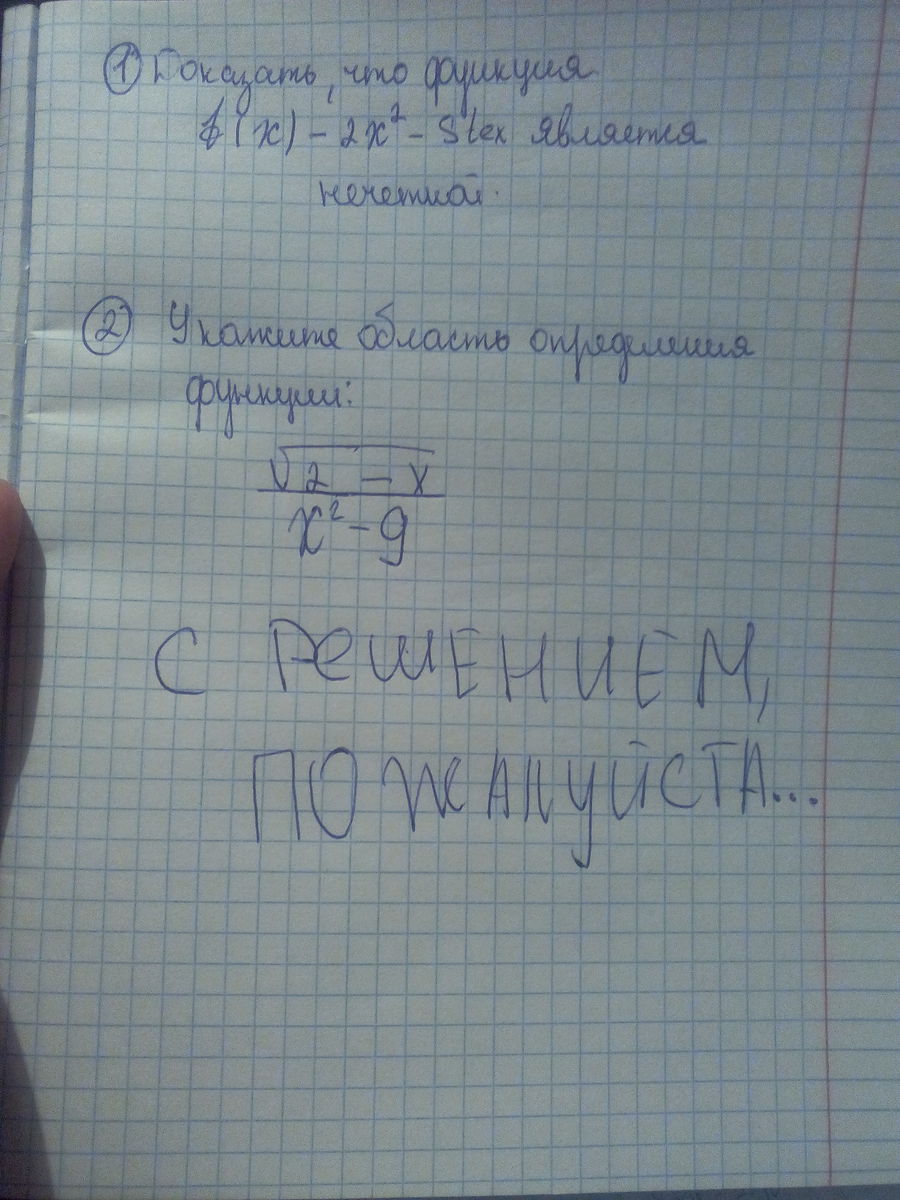 ① Доказать, что функция
f(x) - 2x² - Stex является
нечетной.
② Укажите область определения
функции:
√2 - x
x² - 9
С РЕШЕНИЕМ,
ПОЖАЛУЙСТА...